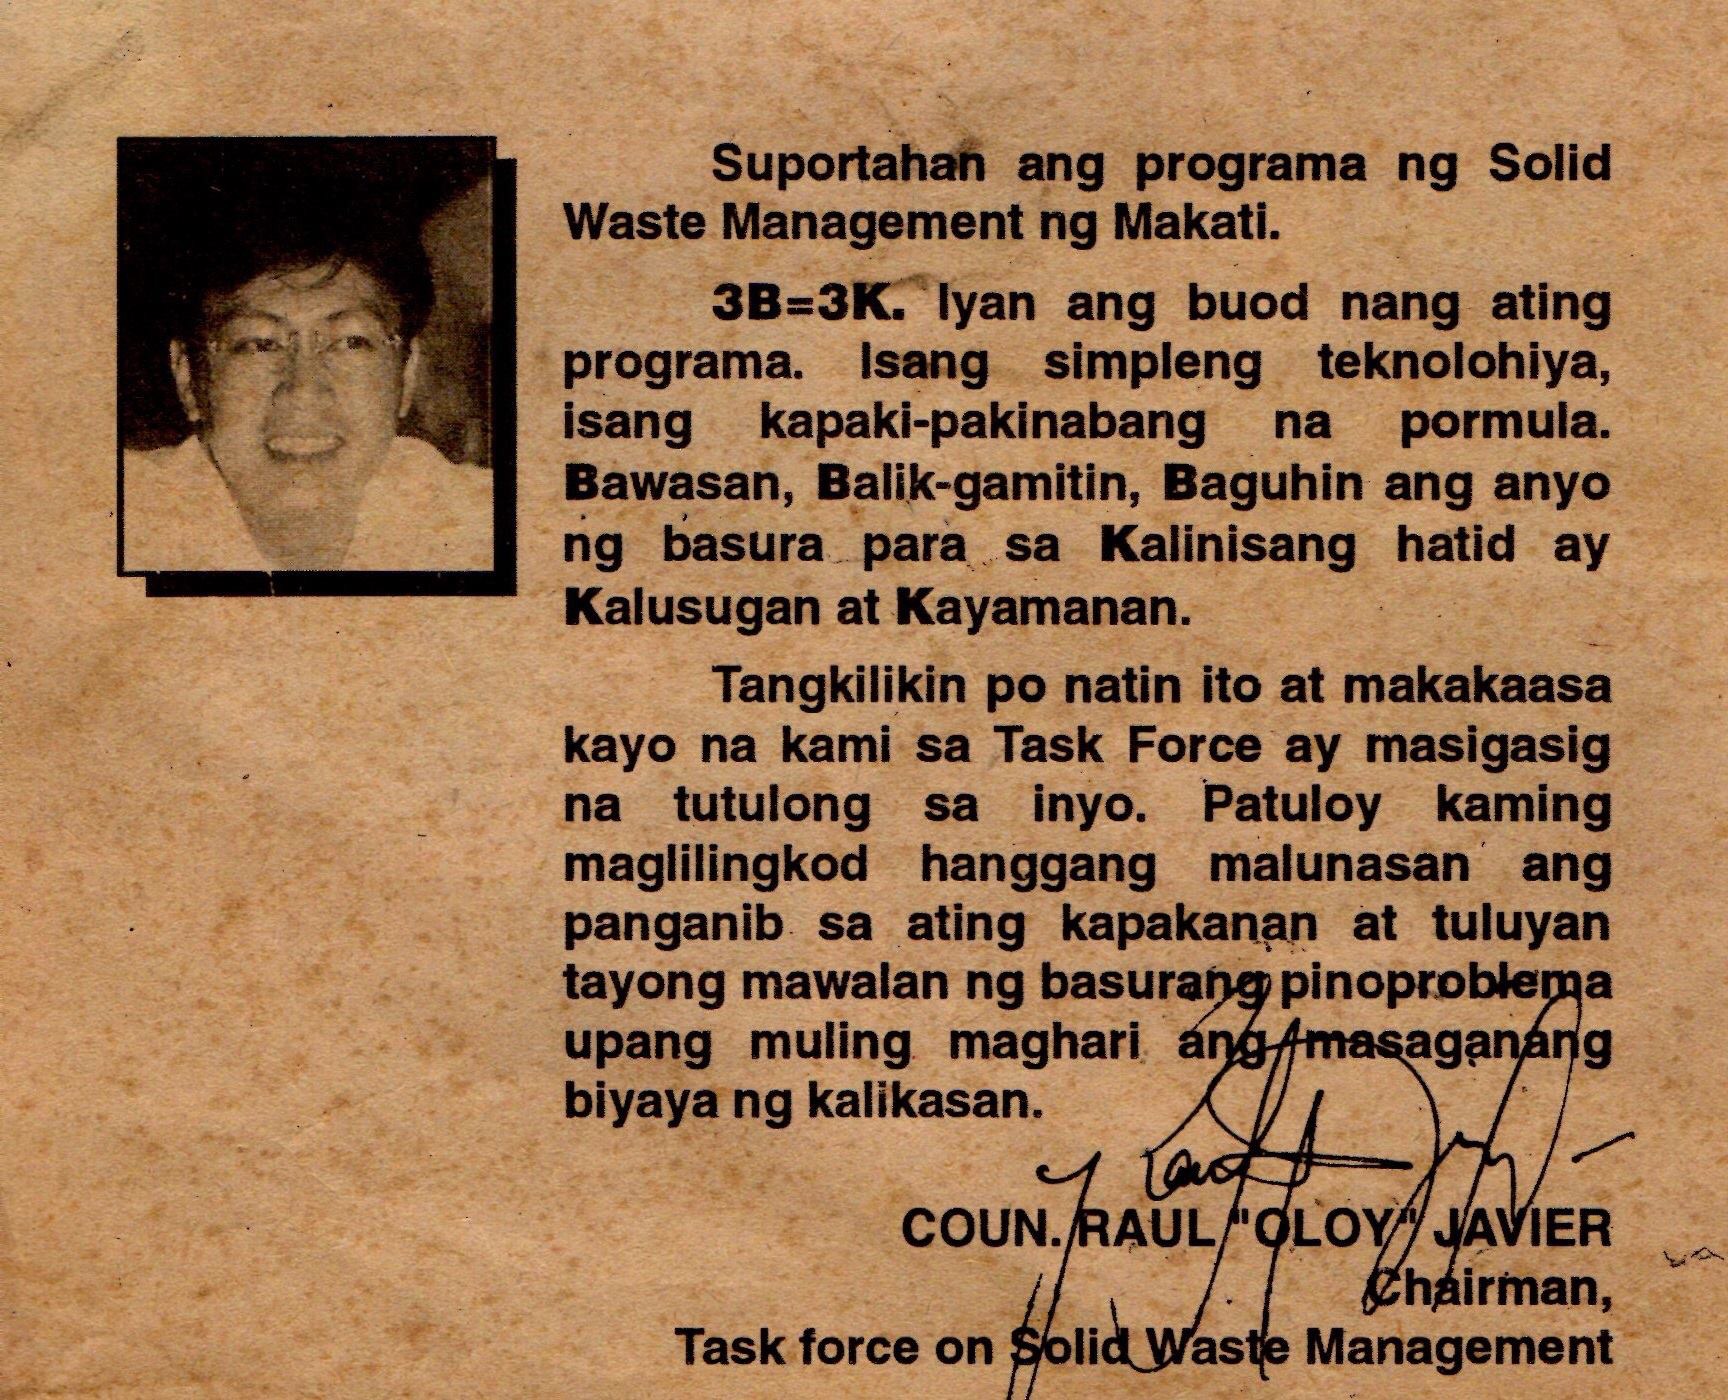 Suportahan ang programa ng Solid
Waste Management ng Makati.
3B=3K. Iyan ang buod nang ating
programa. Isang simpleng teknolohiya,
isang kapaki-pakinabang na pormula.
Bawasan, Balik-gamitin, Baguhin ang anyo
ng basura para sa Kalinisang hatid ay
Kalusugan at Kayamanan.
Tangkilikin po natin ito at makakaasa
kayo na kami sa Task Force ay masigasig
na tutulong sa inyo. Patuloy kaming
maglilingkod hanggang malunasan ang
panganib sa ating kapakanan at tuluyan
tayong mawalan ng basurang pinoproblema
upang muling maghari ang masaganang
biyaya ng kalikasan.
COUN. RAUL "OLOY" JAVIER
Chairman,
Task force on Solid Waste Management